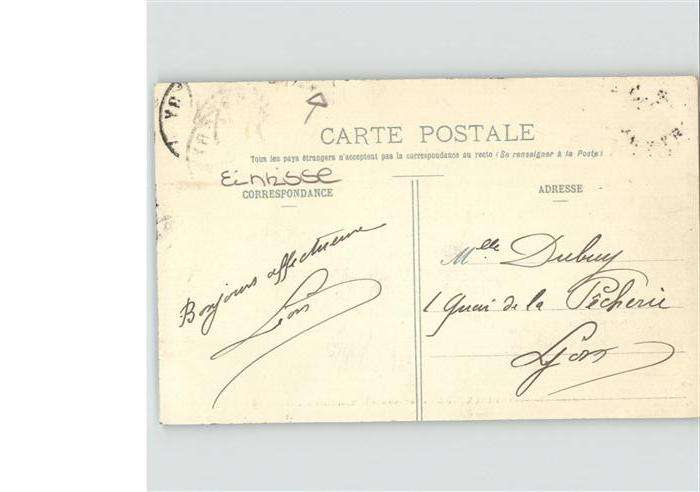 CARTE POSTALE
Tous les pays étrangers n'acceptent pas la correspondance au recto (Se renseigner à la Poste)
CORRESPONDANCE
ADRESSE
Bonjours affectueux
Léon
Mlle Dubuy
1 Quai de la Pêcherie
Lyon